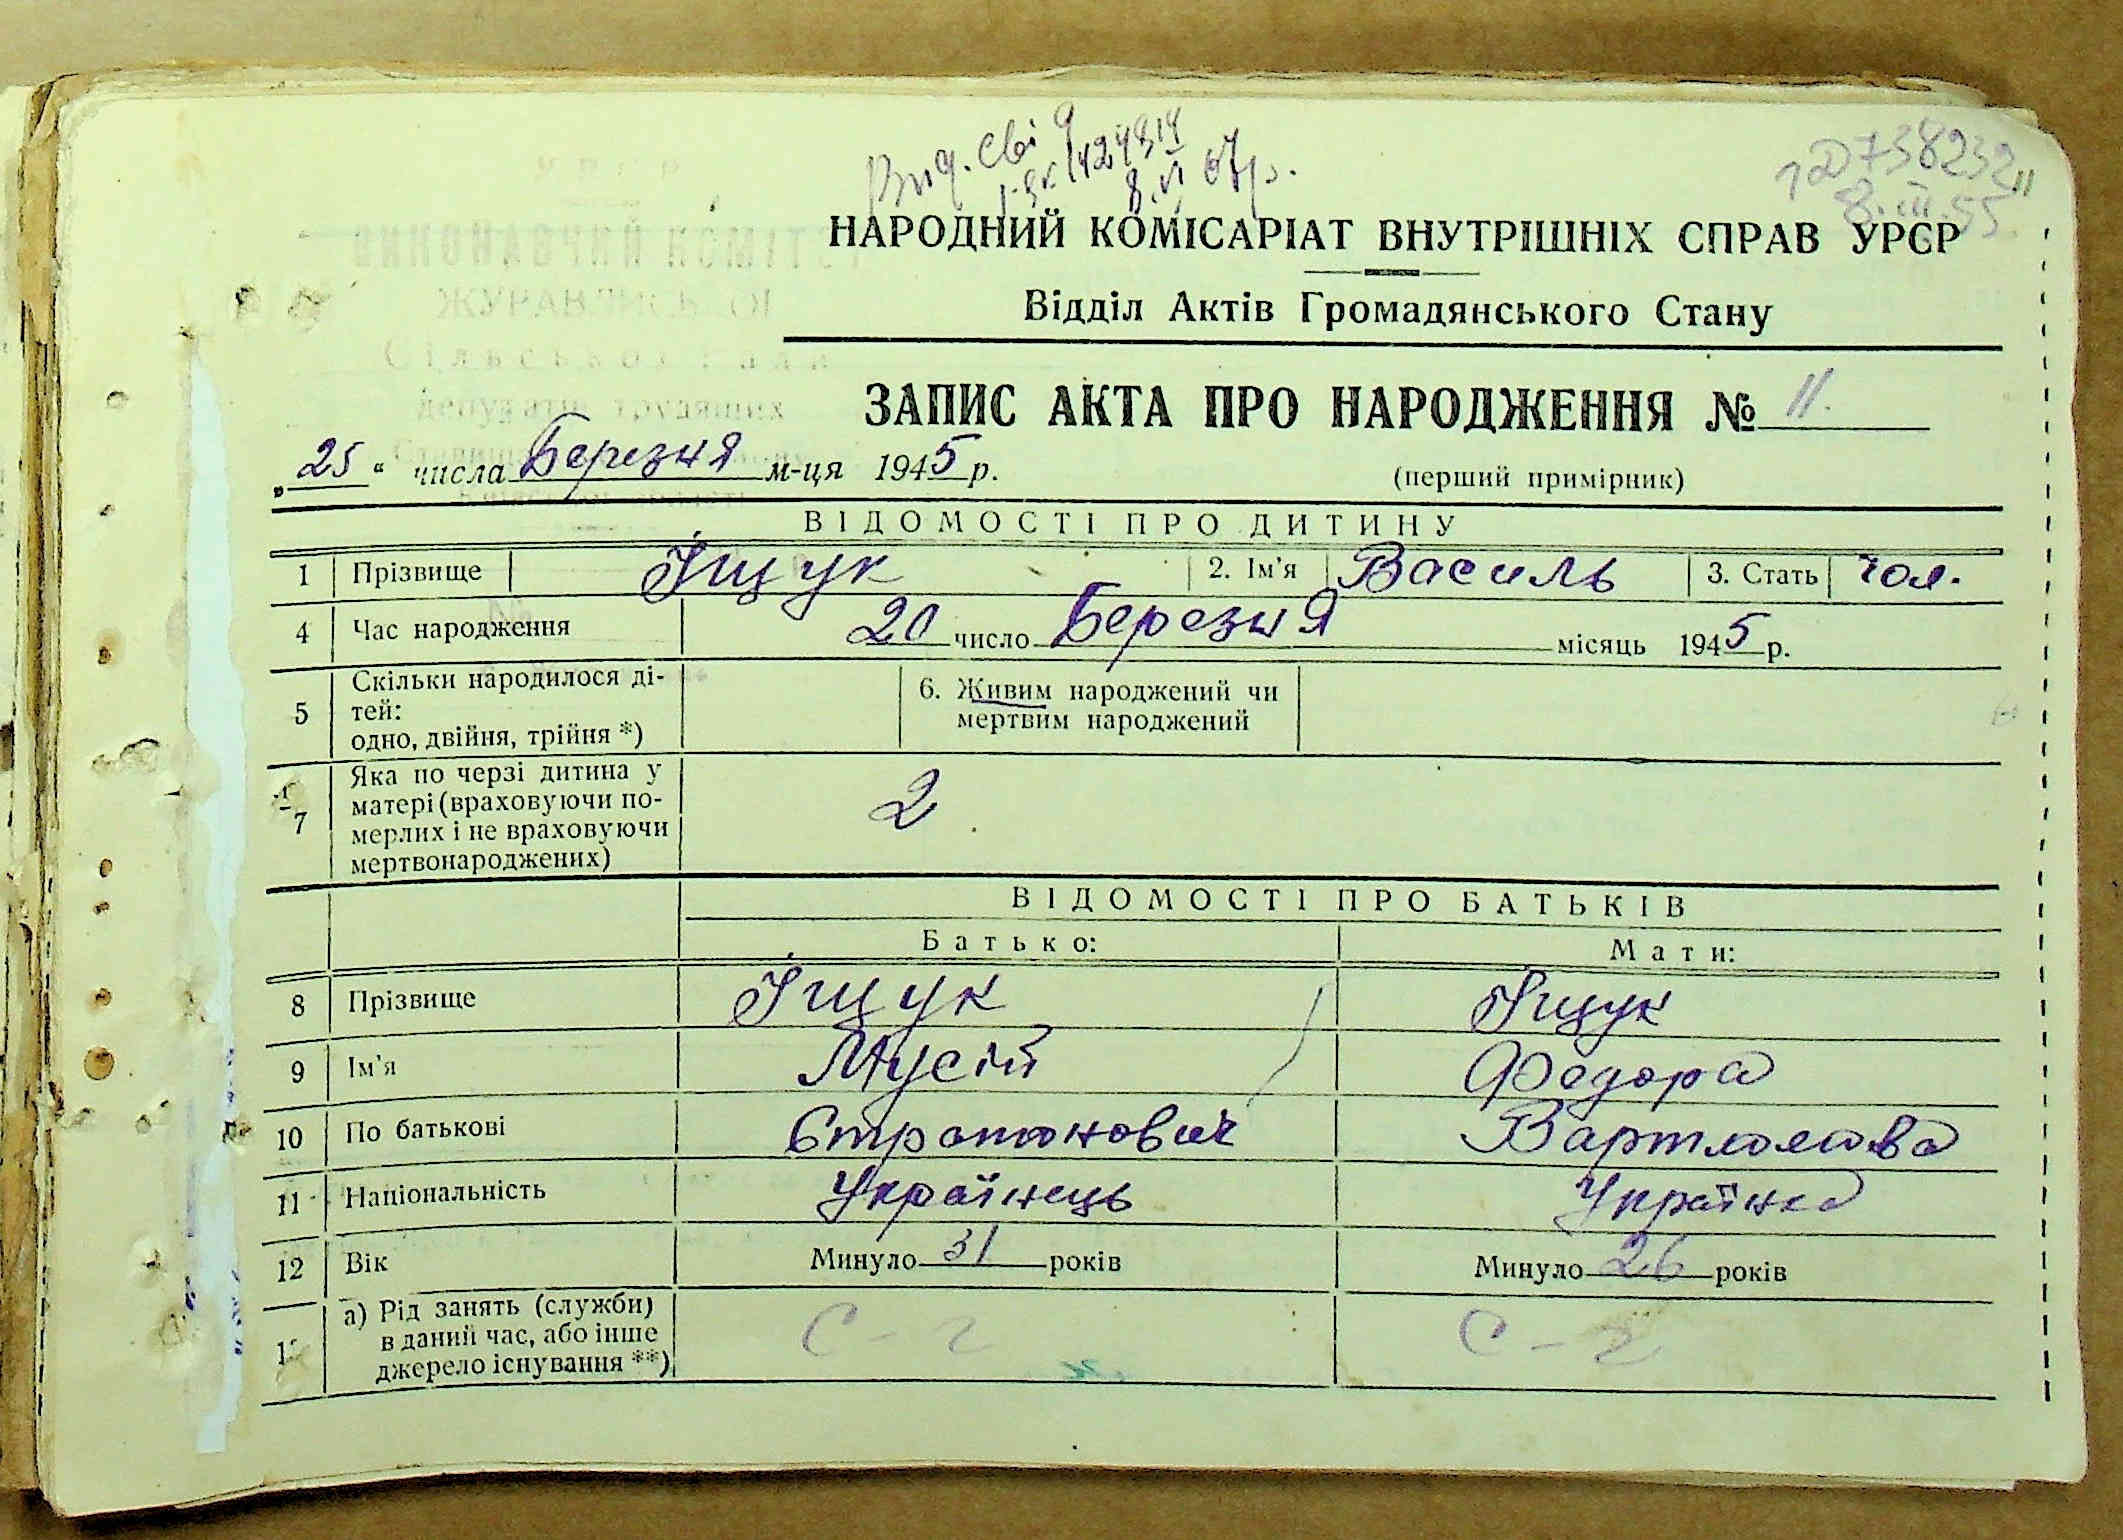 Вид. сві
8.VI 67р.
8.III.55
НАРОДНИЙ КОМІСАРІАТ ВНУТРІШНІХ СПРАВ УРСР
Відділ Актів Громадянського Стану
ЗАПИС АКТА ПРО НАРОДЖЕННЯ № 11.
„25“ числа Березня м-ця 1945 р.
(перший примірник)
ВІДОМОСТІ ПРО ДИТИНУ
1 Прізвище Іщук 2. Ім'я Василь 3. Стать чол.
4 Час народження 20 число Березня місяць 1945 р.
5 Скільки народилося ді-
тей:
одно, двійня, трійня *)
6. Живим народжений чи
мертвим народжений
7 Яка по черзі дитина у
матері (враховуючи по-
мерлих і не враховуючи
мертвонароджених)
2
ВІДОМОСТІ ПРО БАТЬКІВ
Батько: Мати:
8 Прізвище Іщук Іщук
9 Ім'я Мусій Федора
10 По батькові Єтратонович Вартломова
11 Національність Українець Українка
12 Вік Минуло 31 років Минуло 26 років
а) Рід занять (служби)
в даний час, або інше
джерело існування **)
С-г С-г